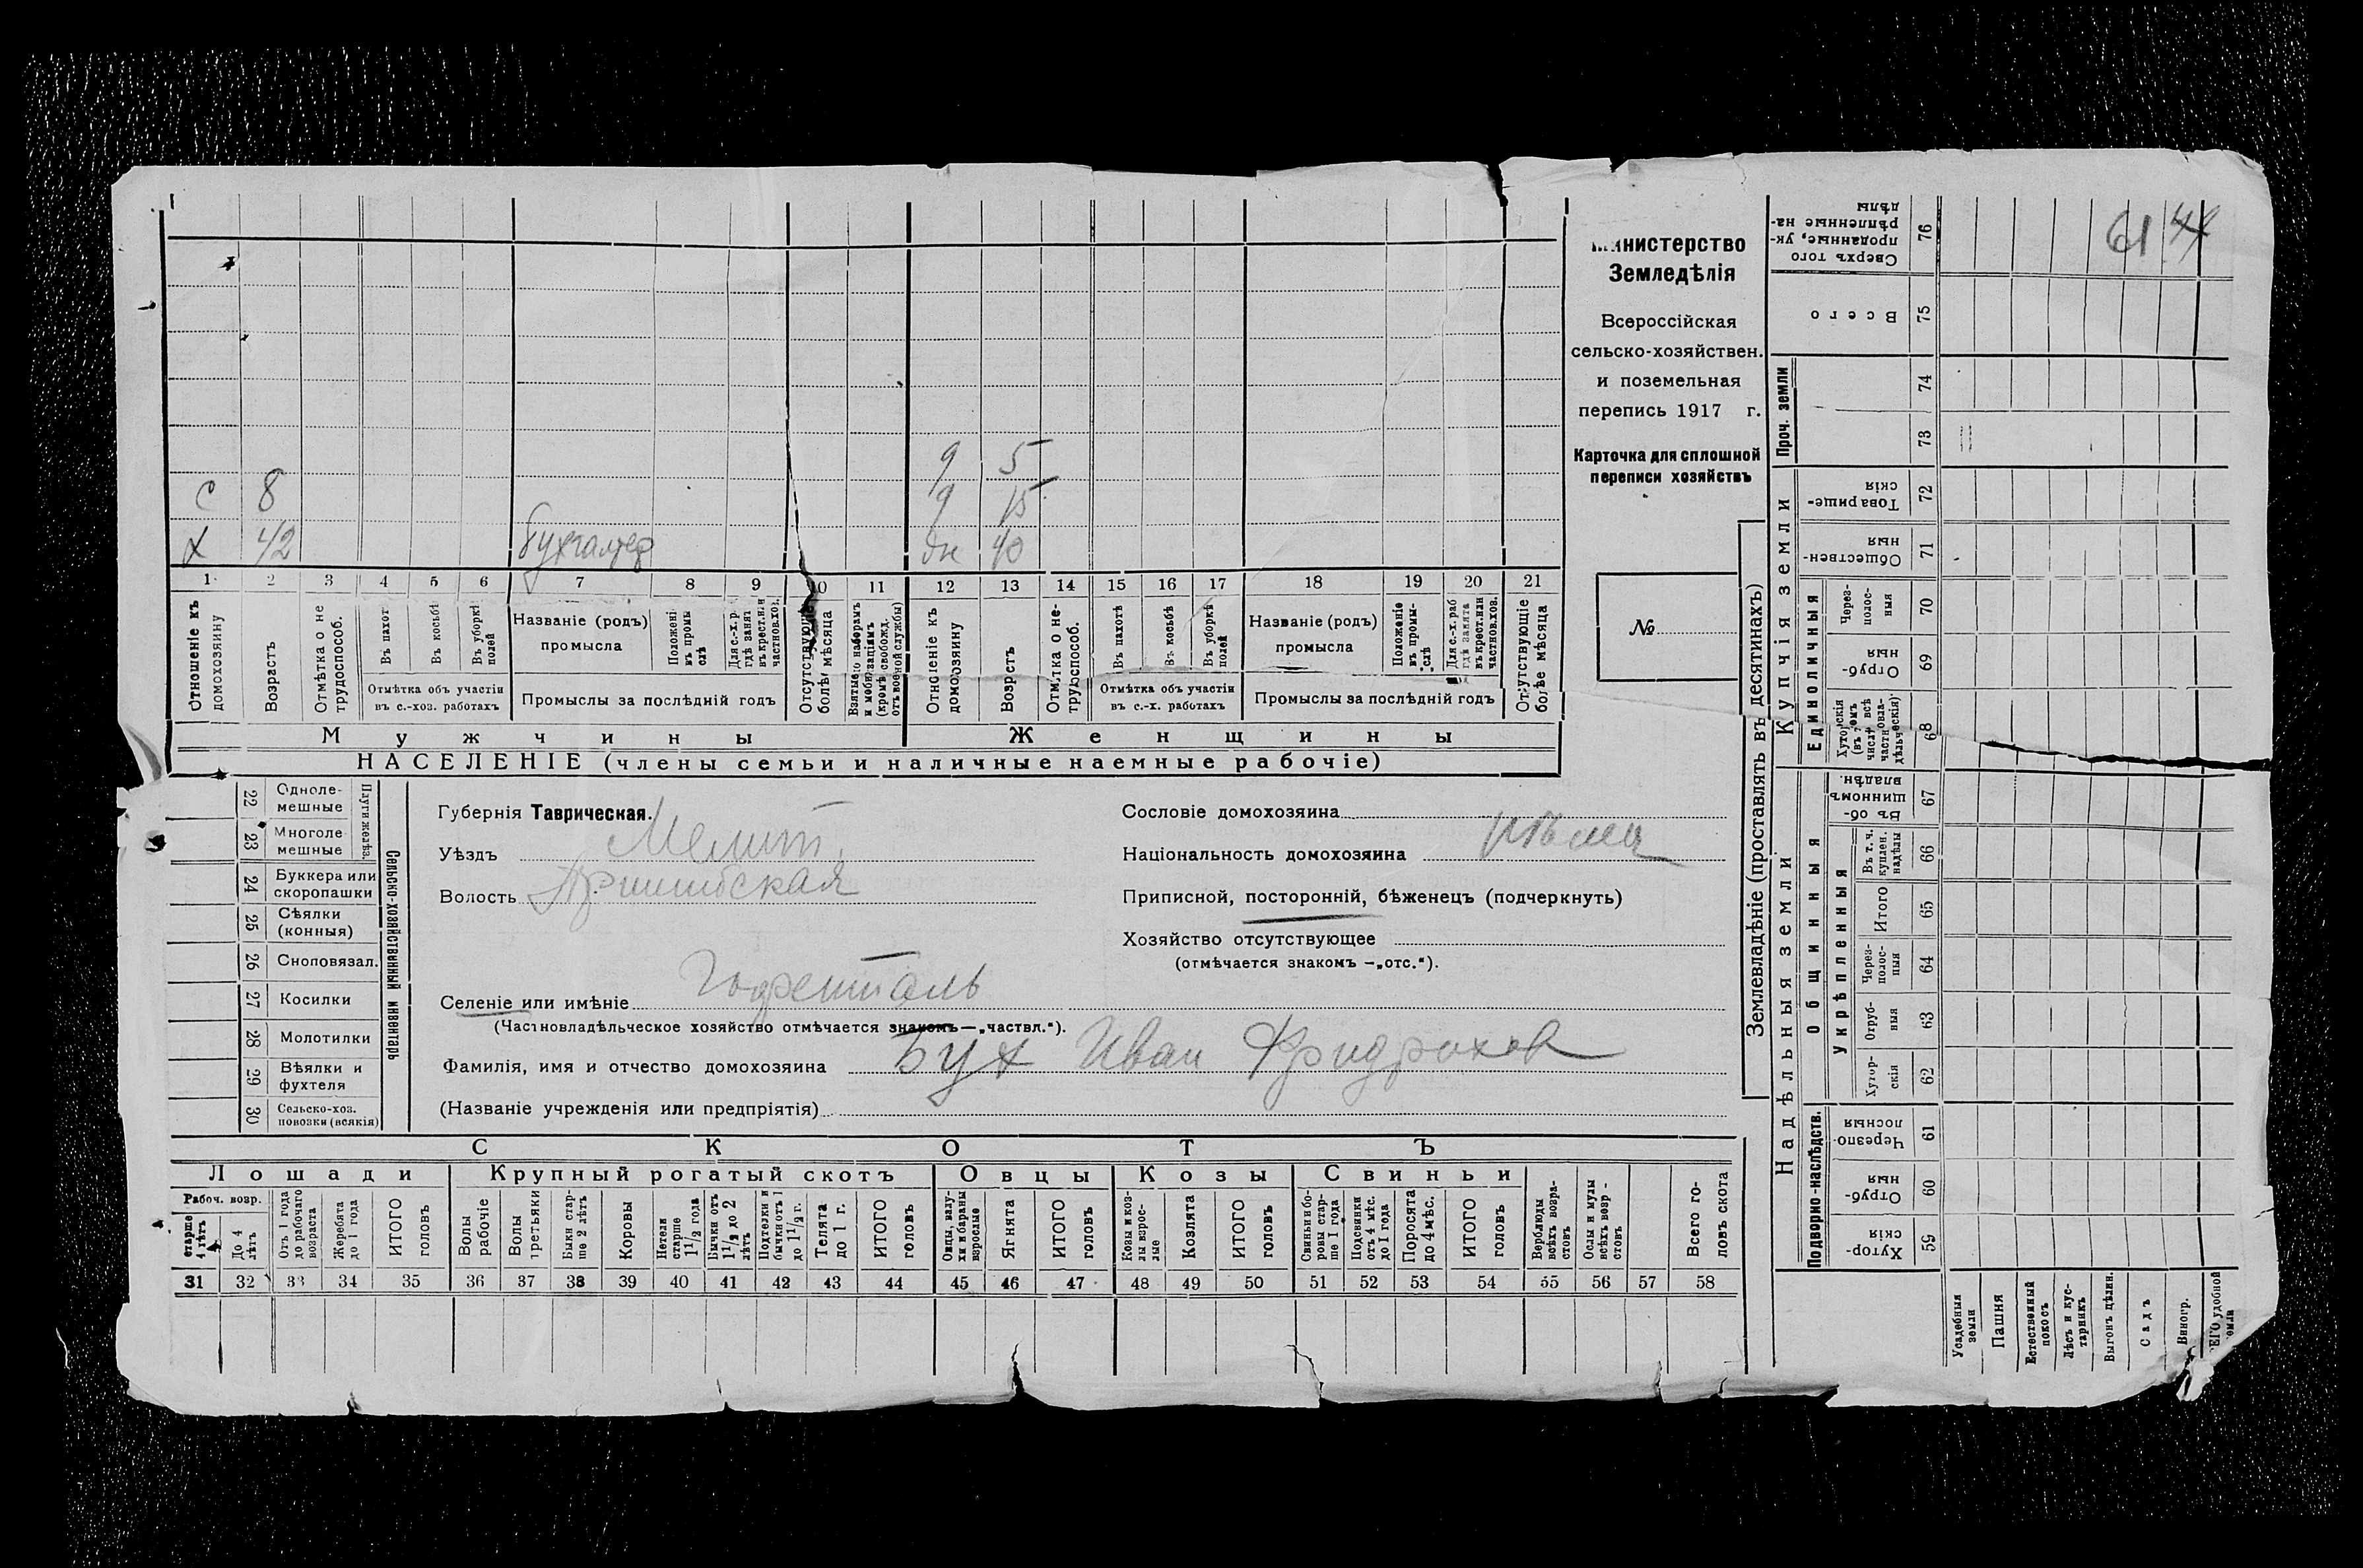 61 44
Министерство
Земледѣлія
Всероссійская
сельско-хозяйствен.
и поземельная
перепись 1917 г.
Карточка для сплошной
переписи хозяйствъ
№
д 5
с 8 д 15
х 42 бухгалтер жк 40
1 2 3 4 5 6 7 8 9 10 11 12 13 14 15 16 17 18 19 20 21
Отношеніе къ домохозяину
Возрастъ
Отмѣтка о не трудоспособ.
Въ пахот
Въ косьбѣ
Въ уборкѣ полей
Отмѣтка объ участіи
въ с.-хоз. работахъ
Названіе (родъ)
промысла
Положені въ промы слѣ
Для с.-х. р. гдѣ занят въ крест. или частнов. хоз.
Промыслы за послѣдній годъ
Отсутствующіе болѣе мѣсяца
Взятые по наборамъ и мобилизаціямъ (кромѣ свобожд. отъ военной службы)
Отношеніе къ домохозяину
Возрастъ
Отмѣтка о не- трудоспособ.
Въ пахотѣ
Въ косьбѣ
Въ уборкѣ полей
Отмѣтка объ участіи
въ с.-х. работахъ
Названіе (родъ)
промысла
Положеніе въ промы- слѣ
Для с.-х. раб гдѣ занята въ крест. или частнов. хоз.
Промыслы за послѣдній годъ
Отсутствующіе болѣе мѣсяца
Мужчины Женщины
НАСЕЛЕНІЕ (члены семьи и наличные наемные рабочіе)
22 Одноле-мешные
23 Многоле мешные
Плуги желѣз.
24 Буккера или скоропашки
25 Сѣялки (конныя)
26 Сноповязал.
27 Косилки
28 Молотилки
29 Вѣялки и фухтеля
30 Сельско-хоз. повозки (всякія)
Сельско-хозяйственный инвентарь
Губернія Таврическая.
Уѣздъ Мелит.
Волость Пришибская
Сословіе домохозяина
Національность домохозяина нѣмец
Приписной, посторонній, бѣженецъ (подчеркнуть)
Хозяйство отсутствующее
(отмѣчается знакомъ —„отс.“).
Селеніе или имѣніе Гофенталь
(Частновладѣльческое хозяйство отмѣчается знакомъ—„частвл.“).
Фамилія, имя и отчество домохозяина Бух Иван Фридрихов
(Названіе учрежденія или предпріятія)
СКОТЪ
Лошади Крупный рогатый скотъ Овцы Козы Свиньи
Рабоч. возр.
старше 4 лѣтъ
До 4 лѣтъ
Отъ 1 года до рабочаго возраста
Жеребята до 1 года
ИТОГО головъ
Волы рабочіе
Волы третьяки
Быки стар-ше 2 лѣтъ
Коровы
Нетели старше 1 1/2 года
Бычки отъ 1 1/2 до 2 лѣтъ
Подтелки и бычки отъ 1 до 1 1/2 г.
Телята до 1 г.
ИТОГО головъ
Овцы валу-хи и бараны взрослые
Ягнята
ИТОГО головъ
Козы и коз-лы взрос-лые
Козлята
ИТОГО головъ
Свиньи и бо-ровы стар-ше 1 года
Подсвинки отъ 4 мѣс. до 1 года
Поросята до 4 мѣс.
ИТОГО головъ
Верблюды всѣхъ возра-стовъ
Ослы и мулы всѣхъ возр-стовъ
Всего го-ловъ скота
31 32 33 34 35 36 37 38 39 40 41 42 43 44 45 46 47 48 49 50 51 52 53 54 55 56 57 58
Землевладѣніе (проставлять въ десятинахъ)
Надѣльныя земли
Купчія земли
Проч. земли
Подворно-наслѣдств.
Общинныя
Укрѣпленныя
Единоличныя
76 Сверхъ того проданные, ук-рѣпленные на-дѣлы
75 Всего
74
73
72 Товарище-скія
71 Обществен-ныя
70 Через-полос-ныя
69 Отруб-ныя
68 Хуторскія (въ томъ числѣ всѣ частновла-дѣльческія)
67 Въ об-щинномъ владѣн.
66 Въ т. ч. куплен. надѣлы
65 Итого
64 Через-полос-ныя
63 Отруб-ныя
62 Хутор-скія
61 Черезпо-лосныя
60 Отруб-ныя
59 Хутор-скія
Усадебныя земли
Пашня
Естественный покосъ
Лѣсъ и кус-тарникъ
Выгонъ цѣлин.
Садъ
Виногр.
ЕГО удобной земли